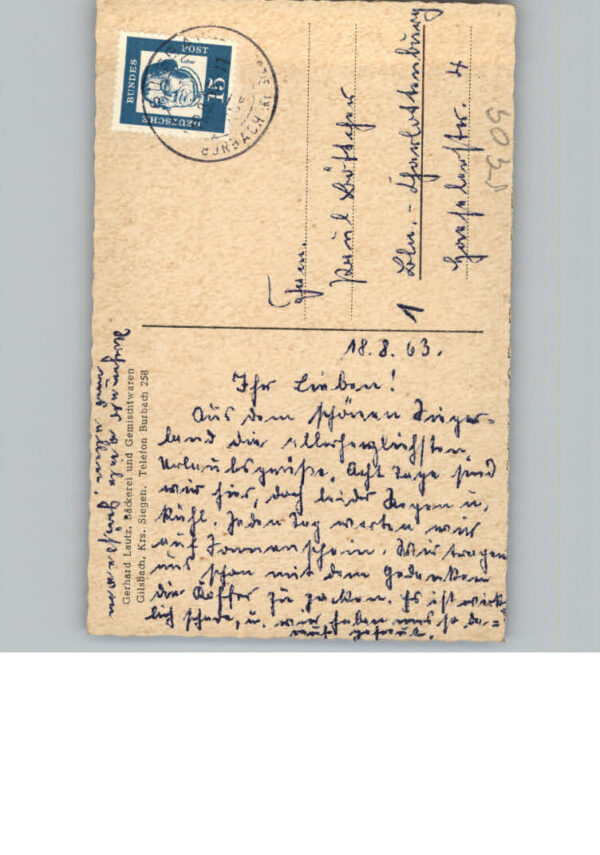 DEUTSCHE BUNDESPOST
15
BURBACH, KR. SIEGEN
5905
Fam.
Paul Böttcher
1 Bln.-Charlottenburg
Haeselerstr. 4
18.8.63.
Ihr Lieben!
Aus dem schönen Sieger-
land die allerherzlichsten
Urlaubsgrüße. Acht Tage sind
wir hier, doch leider Regen u.
kühl. Jeden Tag warten wir
auf Sonnenschein. Wir tragen
uns schon mit dem Gedanken
die Koffer zu packen. Es ist wirk-
lich schade, u. wir haben uns so da-
rauf gefreut.
Gerhard Lautz, Bäckerei und Gemischtwaren
Gilsbach, Krs. Siegen, Telefon Burbach 258
viele Grüße